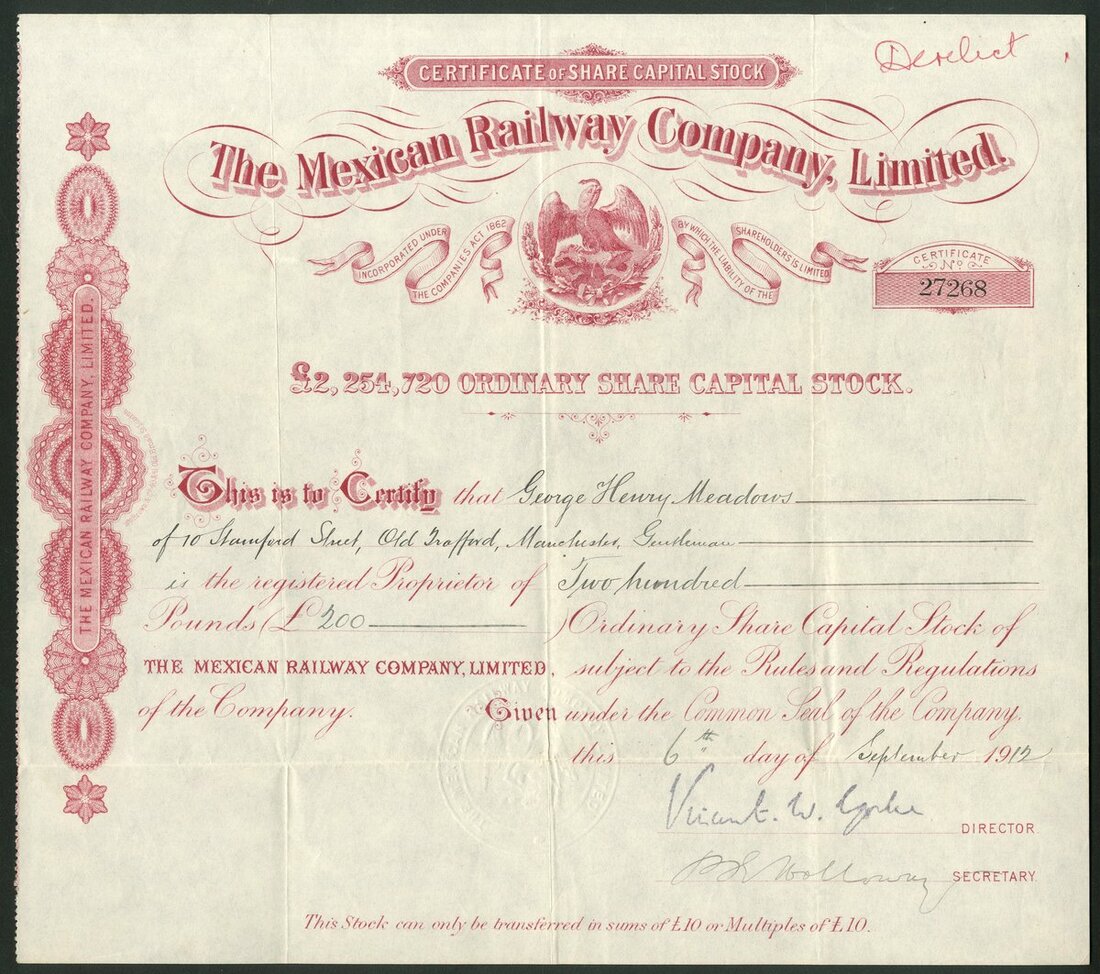 Derelict
CERTIFICATE OF SHARE CAPITAL STOCK
The Mexican Railway Company, Limited.
INCORPORATED UNDER
THE COMPANIES ACT 1862
BY WHICH THE LIABILITY OF THE
SHAREHOLDERS IS LIMITED
CERTIFICATE
No
27268
£2,254,720 ORDINARY SHARE CAPITAL STOCK.
This is to Certify that George Henry Meadows
of 10 Stamford Street, Old Trafford, Manchester, Gentleman
is the registered Proprietor of Two hundred
Pounds (£ 200 ) Ordinary Share Capital Stock of
THE MEXICAN RAILWAY COMPANY, LIMITED, subject to the Rules and Regulations
of the Company. Given under the Common Seal of the Company.
this 6th day of September 1912
Vincent W. Yorke
DIRECTOR
Holloway SECRETARY
This Stock can only be transferred in sums of £10 or Multiples of £10.
THE MEXICAN RAILWAY COMPANY, LIMITED.